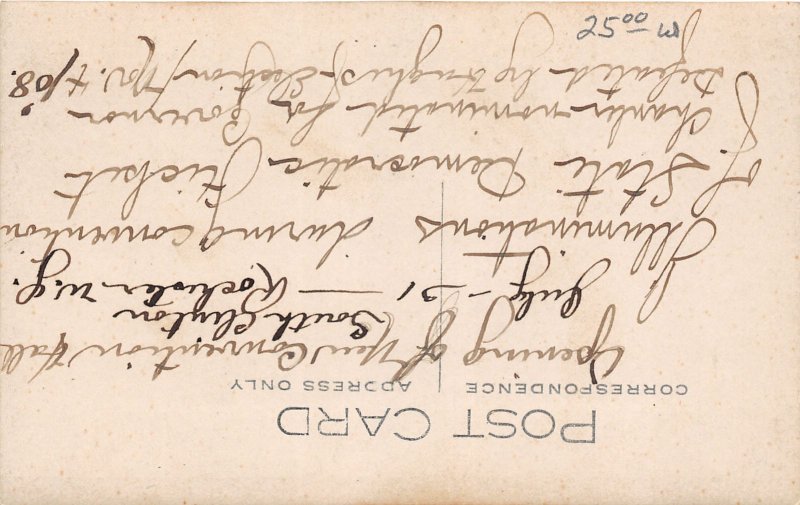 POST CARD
CORRESPONDENCE
ADDRESS ONLY
Opening of New Convention Hall
South Clinton
July - 21 — Rochester N.Y.
Illuminations during convention
of State Democratic Ticket
J. Chanler nominated for Governor
Defeated by Hughes, Election, Nov. 4/08.
25 00